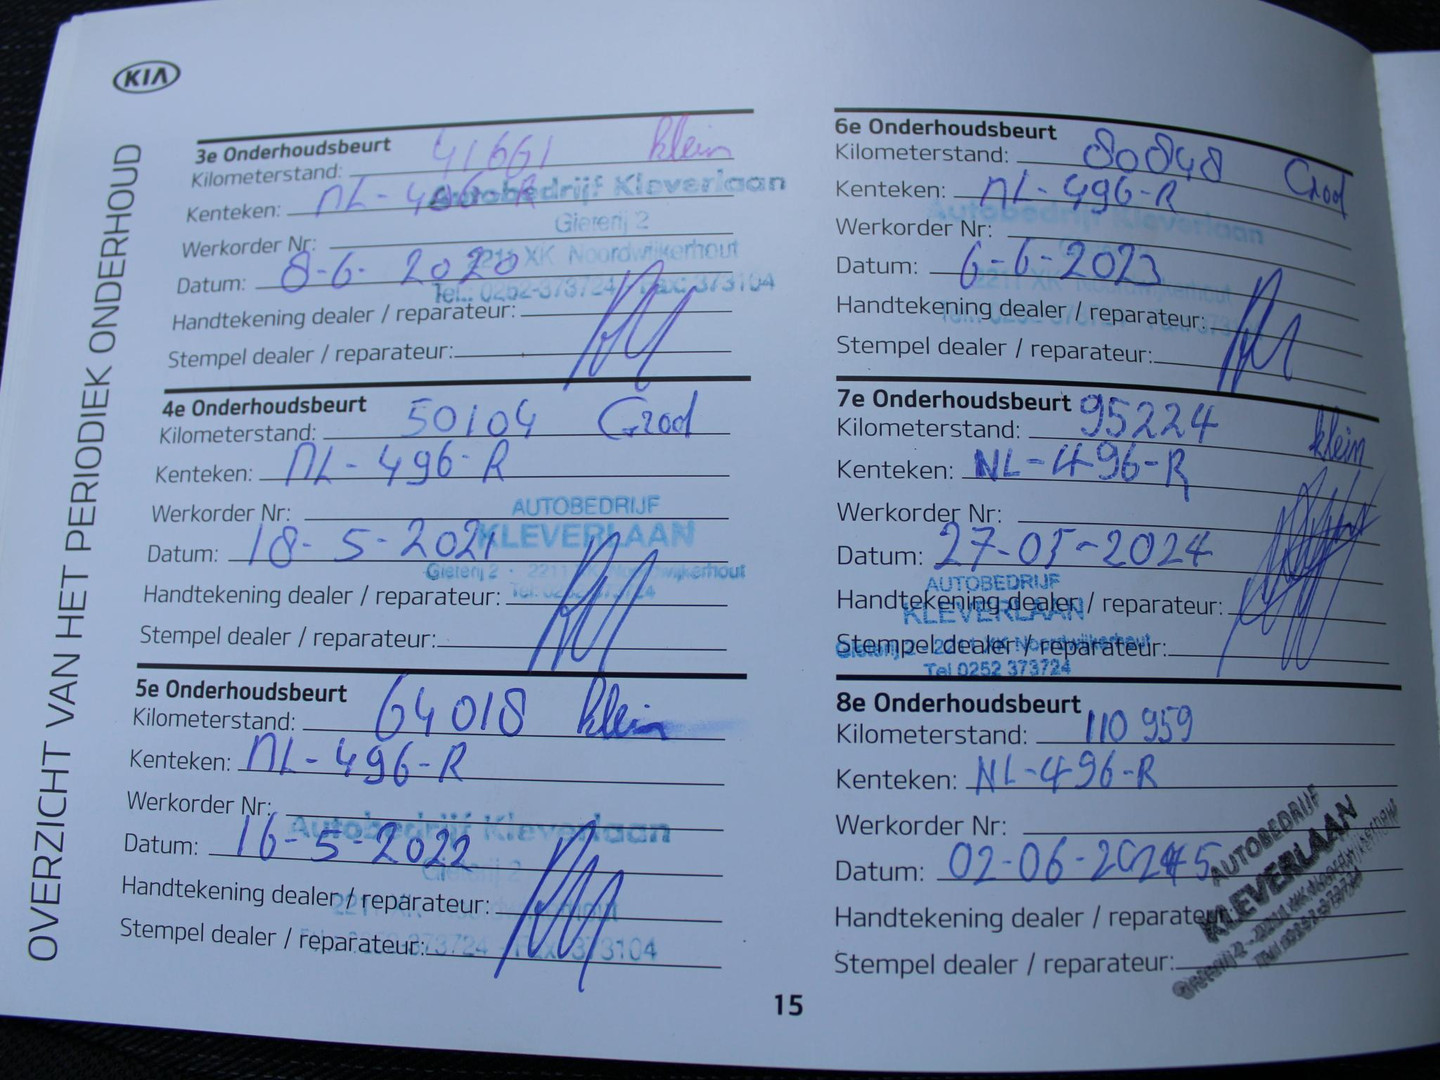 KIA
OVERZICHT VAN HET PERIODIEK ONDERHOUD
3e Onderhoudsbeurt
Kilometerstand: 41661 klein
Kenteken: NL-496-R
Autobedrijf Kleverlaan
Gieterij 2
Werkorder Nr:
2211 XK Noordwijkerhout
Datum: 8-6-2020
Tel.: 0252-373724 Fax: 373104
Handtekening dealer / reparateur:
Stempel dealer / reparateur:
4e Onderhoudsbeurt
Kilometerstand: 50104 Groot
Kenteken: NL-496-R
Werkorder Nr:
AUTOBEDRIJF
KLEVERLAAN
Datum: 18-5-2021
Gieterij 2 - 2211 XK Noordwijkerhout
Tel: 0252 373724
Handtekening dealer / reparateur:
Stempel dealer / reparateur:
5e Onderhoudsbeurt
Kilometerstand: 64018 klein
Kenteken: NL-496-R
Werkorder Nr:
Autobedrijf Kleverlaan
Datum: 16-5-2022
Gieterij 2
Handtekening dealer / reparateur:
2211 XK Noordwijkerhout
Stempel dealer / reparateur:
373724 Fax: 373104
6e Onderhoudsbeurt
Kilometerstand: 80848 Groot
Kenteken: NL-496-R
Autobedrijf Kleverlaan
Werkorder Nr:
Datum: 6-6-2023
2211 XK Noordwijkerhout
Handtekening dealer / reparateur:
Stempel dealer / reparateur:
7e Onderhoudsbeurt
Kilometerstand: 95224 klein
Kenteken: NL-496-R
Werkorder Nr:
Datum: 27-05-2024
AUTOBEDRIJF
KLEVERLAAN
Handtekening dealer / reparateur:
Gieterij 2 - 2211 XK Noordwijkerhout
Stempel dealer / reparateur:
Tel 0252 373724
8e Onderhoudsbeurt
Kilometerstand: 110 959
Kenteken: NL-496-R
Werkorder Nr:
Datum: 02-06-2025
Handtekening dealer / reparateur:
Stempel dealer / reparateur:
AUTOBEDRIJF
KLEVERLAAN
Gieterij 2 - 2211 XK Noordwijkerhout
Tel 0252 373724
15